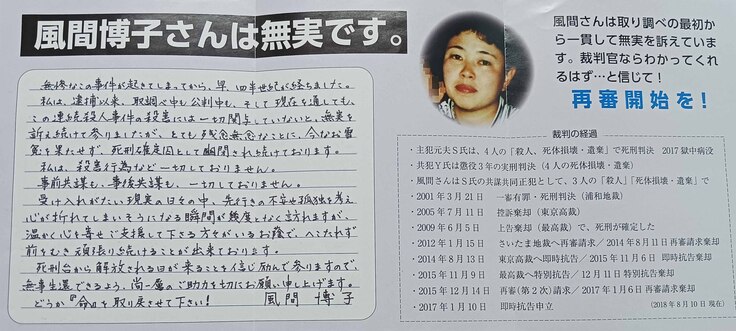 風間博子さんは無実です。
無惨なこの事件が起きてしまってから、早、四半世紀が経ちました。
私は、逮捕以来、取調べ中も公判中も、そして現在を通しても、
この連続殺人事件の殺害には一切関与していないと、無実を
訴え続けて参りましたが、とても残念無念なことに、今なお冤
冤を果たせず、死刑確定囚として幽閉され続けております。
私は、殺害行為など一切しておりません。
事前共謀も、事後共謀も、一切しておりません。
受け入れがたい現実の日々の中、先行きの不安や孤独を考え
心が折れてしまいそうになる瞬間が幾度となく訪れますが、
温かく心を寄せご支援して下さる方々がいるお蔭で、へこたれず
前をむき頑張り続けることが出来ております。
死刑台から解放される日が来ることを信じ励んで参りますので、
無事生還できるよう、尚一層のご助力を切にお願い申し上げます。
どうか『命』を取り戻させて下さい! 風間 博子
風間さんは取り調べの最初か
ら一貫して無実を訴えていま
す。裁判官ならわかってくれ
るはず…と信じて!
再審開始を!
裁判の経過
・主犯元夫S氏は、4人の「殺人、死体損壊・遺棄」で死刑判決 2017獄中病没
・共犯Y氏は懲役3年の実刑判決(4人の死体損壊・遺棄)
・風間さんはS氏の共謀共同正犯として、3人の「殺人」「死体損壊・遺棄」で
・2001年3月21日 一審有罪・死刑判決(浦和地裁)
・2005年7月11日 控訴棄却(東京高裁)
・2009年6月5日 上告棄却(最高裁)で、死刑が確定した
・2012年1月15日 さいたま地裁へ再審請求/2014年8月11日再審請求棄却
・2014年8月13日 東京高裁へ即時抗告/2015年11月6日 即時抗告棄却
・2015年11月9日 最高裁へ特別抗告/12月11日 特別抗告棄却
・2015年12月14日 再審(第2次)請求/2017年1月6日再審請求棄却
・2017年1月10日 即時抗告申立 (2018年8月10日 現在)